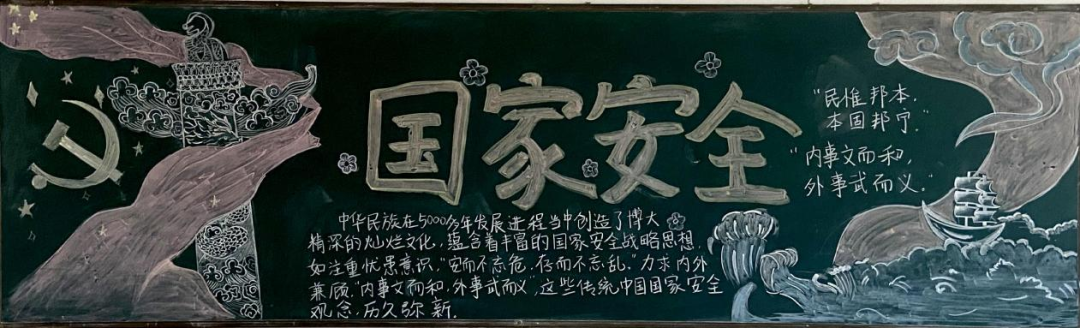 国家安全
"民惟邦本,
本固邦宁."
"内事文而和,
外事武而义."
中华民族在5000多年发展进程当中创造了博大
精深的灿烂文化,蕴含着丰富的国家安全战略思想,
如注重忧患意识,"安而不忘危,存而不忘乱."力求内外
兼顾,"内事文而和,外事武而义,这些传统中国国家安全
观念,历久弥新.